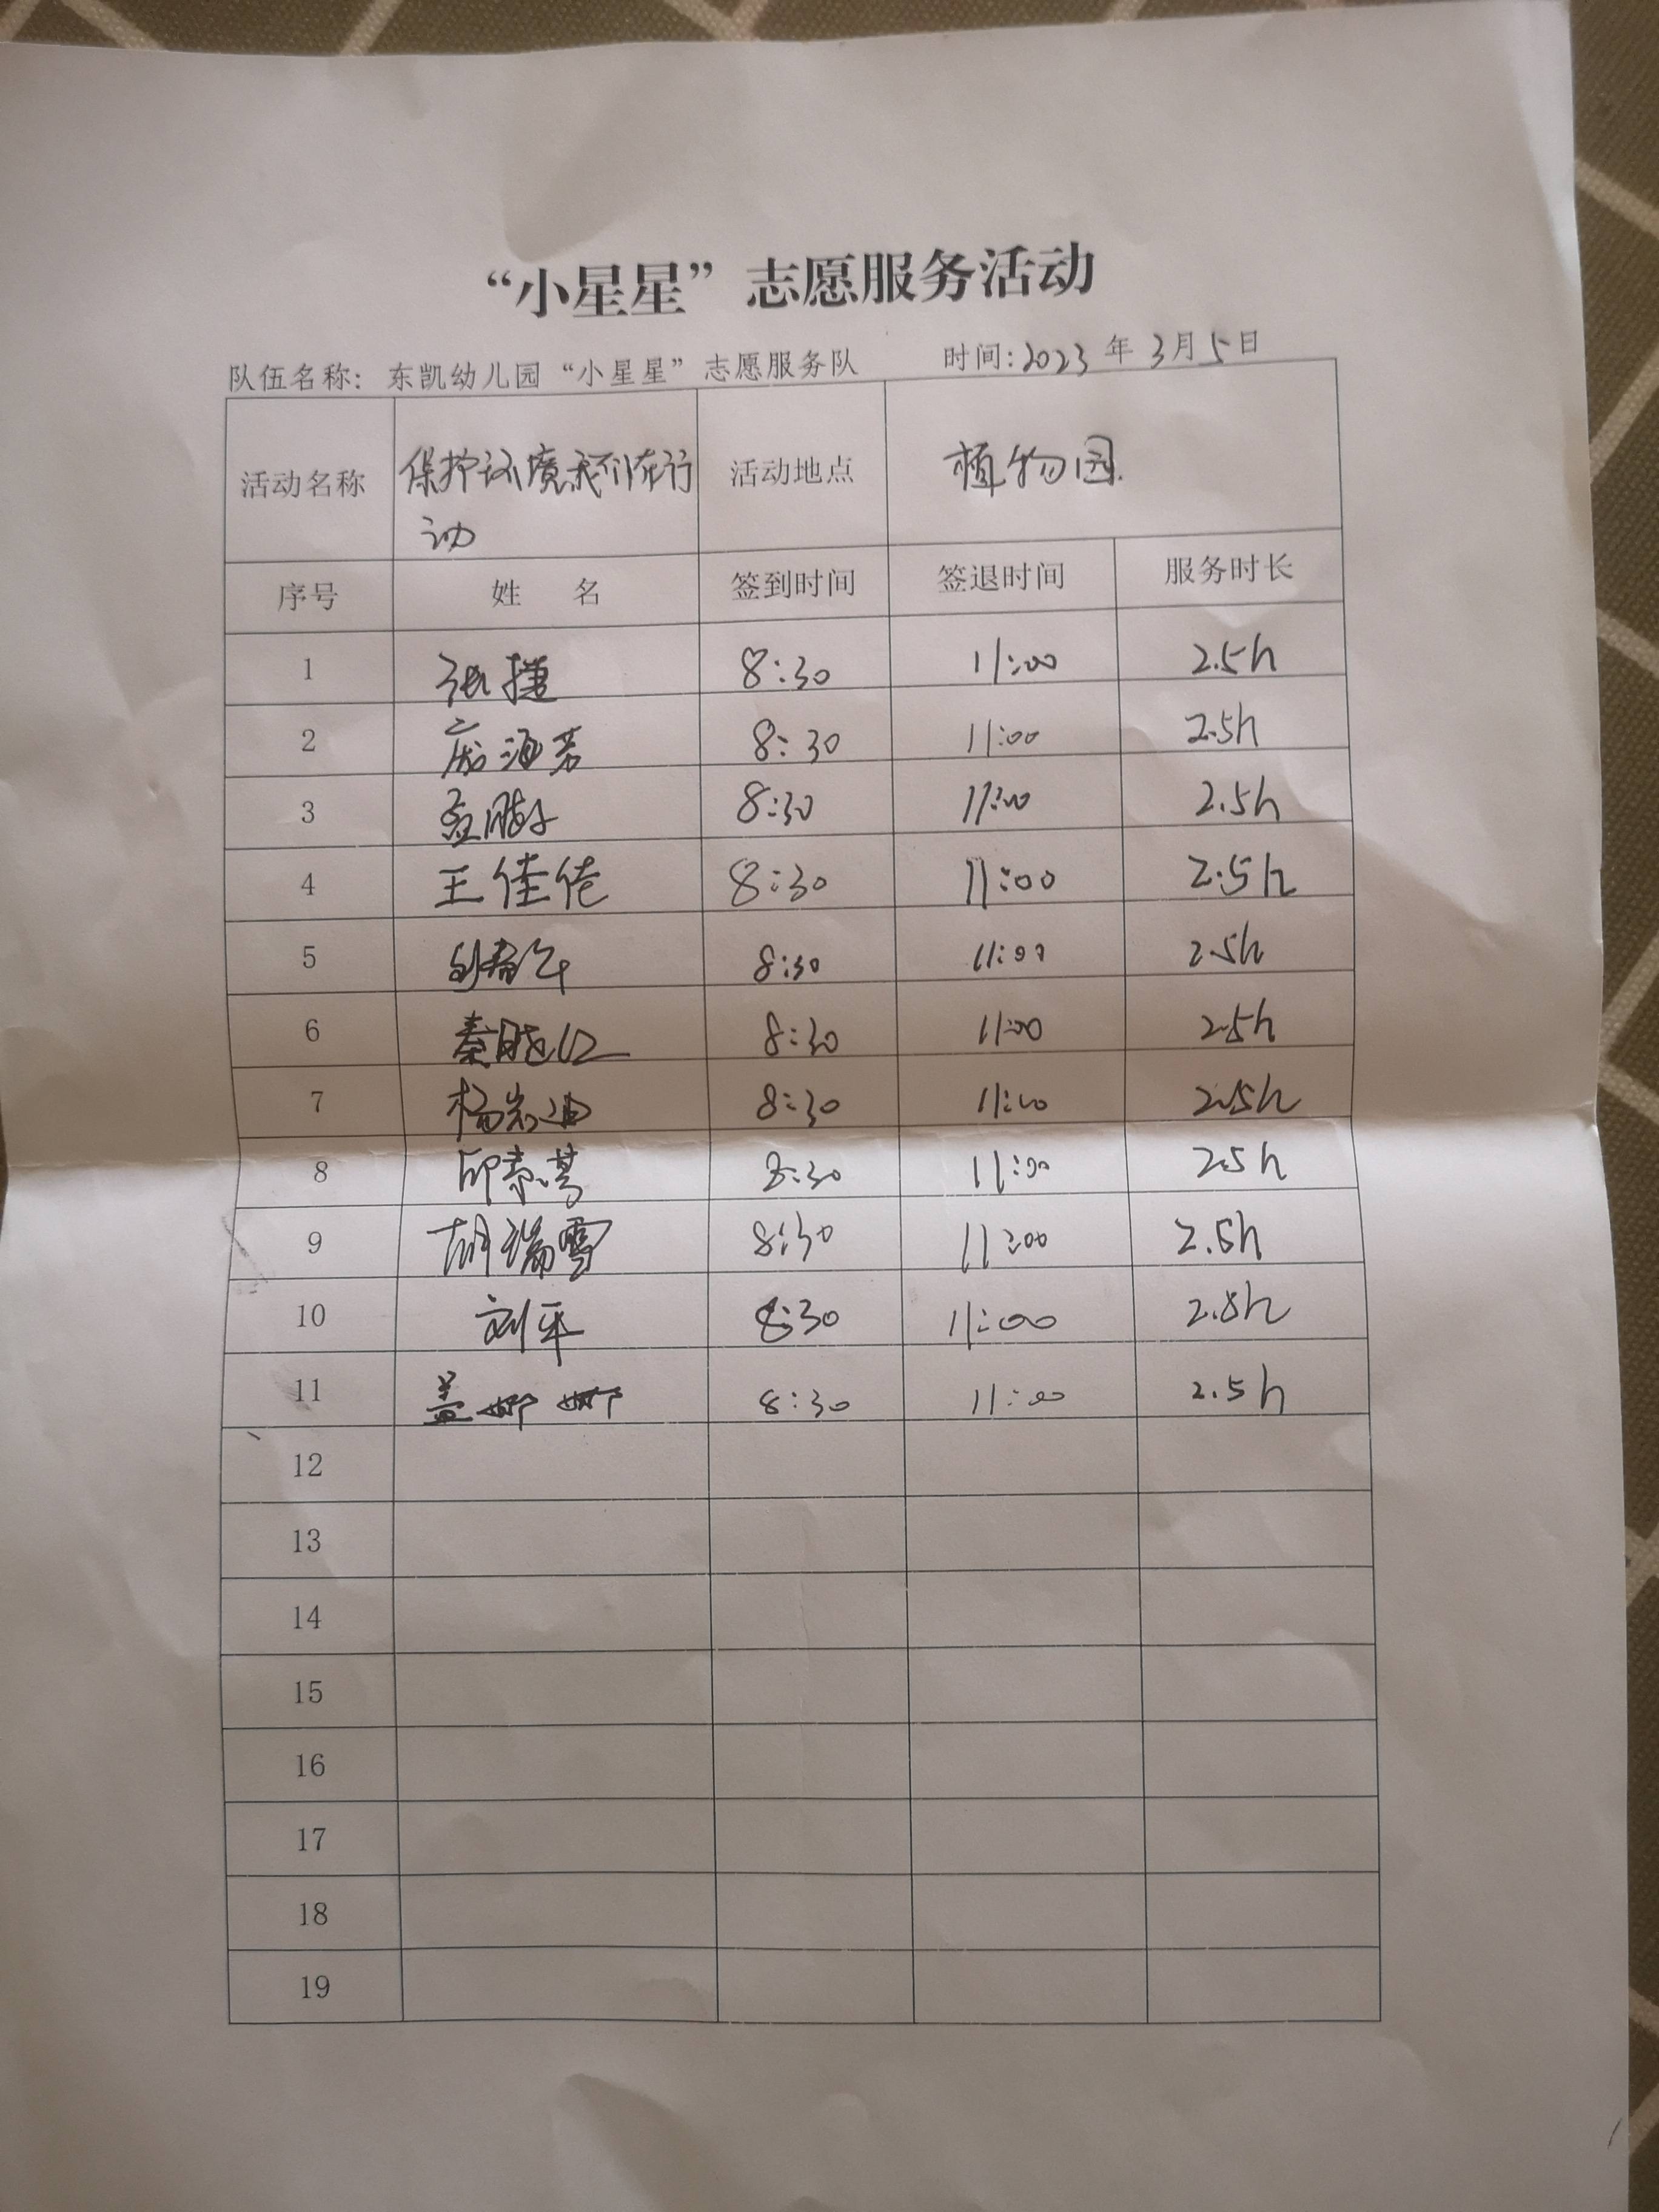 “小星星”志愿服务活动
队伍名称：东凯幼儿园“小星星”志愿服务队 时间：2023年3月5日
活动名称 保护环境我们在行动 活动地点 植物园
序号 姓 名 签到时间 签退时间 服务时长
1 张捷 8:30 11:00 2.5h
2 庞海芳 8:30 11:00 2.5h
3 8:30 11:00 2.5h
4 王佳倦 8:30 11:00 2.5h
5 8:30 11:00 2.5h
6 秦晓红 8:30 11:00 2.5h
7 杨岩迪 8:30 11:00 2.5h
8 8:30 11:00 2.5h
9 胡瑞雪 8:30 11:00 2.5h
10 刘平 8:30 11:00 2.5h
11 盖娜娜 8:30 11:00 2.5h
12
13
14
15
16
17
18
19